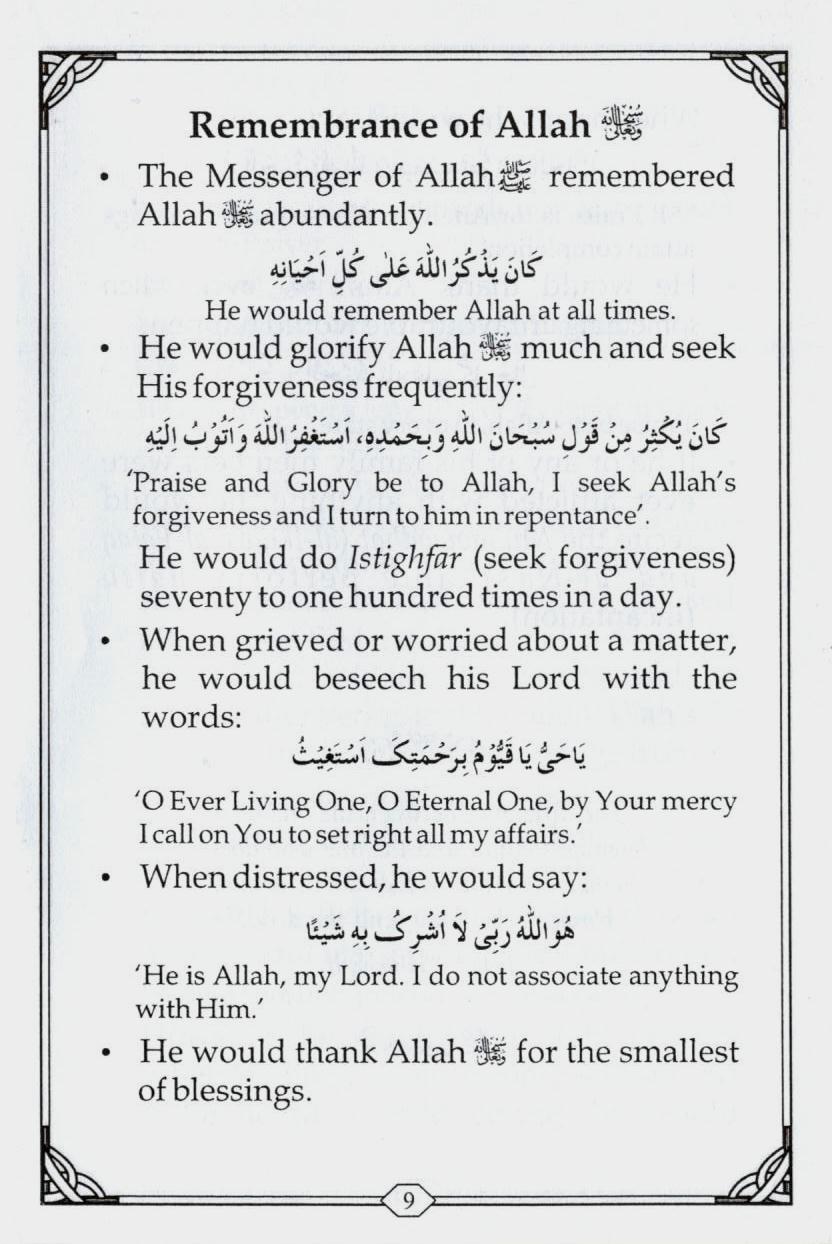 Remembrance of Allah ﷾
• The Messenger of Allah ﷺ remembered
Allah ﷾ abundantly.
كَانَ يَذْكُرُ اللّٰهَ عَلٰى كُلِّ اَحْيَانِهِ
He would remember Allah at all times.
• He would glorify Allah ﷾ much and seek
His forgiveness frequently:
كَانَ يُكْثِرُ مِنْ قَوْلِ سُبْحَانَ اللّٰهِ وَبِحَمْدِهِ، اَسْتَغْفِرُ اللّٰهَ وَاَتُوْبُ اِلَيْهِ
‘Praise and Glory be to Allah, I seek Allah’s
forgiveness and I turn to him in repentance’.
He would do Istighfār (seek forgiveness)
seventy to one hundred times in a day.
• When grieved or worried about a matter,
he would beseech his Lord with the
words:
يَاحَىُّ يَا قَيُّوْمُ بِرَحْمَتِكَ اَسْتَغِيْثُ
‘O Ever Living One, O Eternal One, by Your mercy
I call on You to set right all my affairs.’
• When distressed, he would say:
هُوَ اللّٰهُ رَبِّىْ لَا اُشْرِكُ بِهِ شَيْئًا
‘He is Allah, my Lord. I do not associate anything
with Him.’
• He would thank Allah ﷾ for the smallest
of blessings.
9